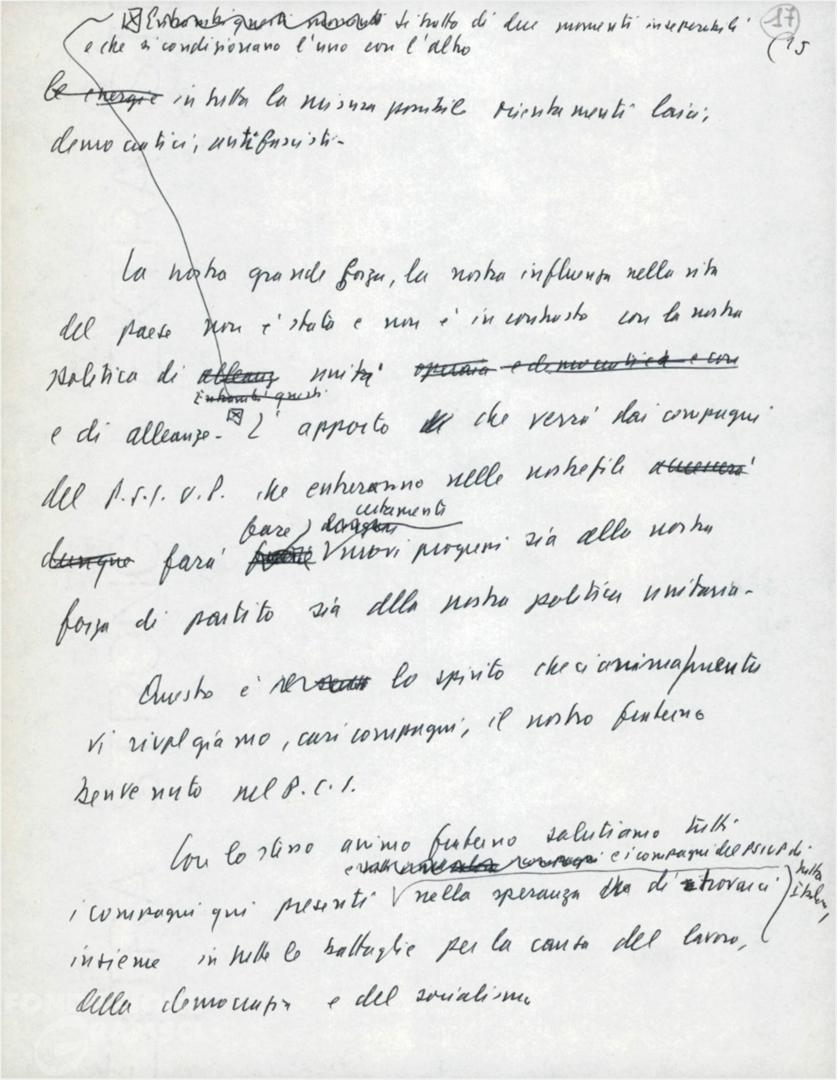 17
(15
⊠ Entrambi questi momenti si tratta di due momenti inseparabili
e che si condizionano l'uno con l'altro
le energie in tutta la misura possibile orientamenti laici,
democratici, antifascisti.
La nostra grande forza, la nostra influenza nella vita
del paese non è stata e non è in contrasto con la nostra
politica di alleanz unità operaia e democratica e con
Entrambi questi
e di alleanze. ⊠ L'apporto che verrà dai compagni
del P.S.I.U.P. che entreranno nelle nostre file accrescerà
fare certamente
dunque farà nuovi progressi sia alla nostra
forza di partito sia alla nostra politica unitaria.
Questo è lo spirito che ci anima mentre
vi rivolgiamo, cari compagni, il nostro fraterno
benvenuto nel P.C.I.
Con lo stesso animo fraterno salutiamo tutti
compagni e i compagni del PSIUP di tutta Italia,
i compagni qui presenti nella speranza di trovarci
insieme in tutte le battaglie per la causa del lavoro,
della democrazia e del socialismo
FONDAZIONE